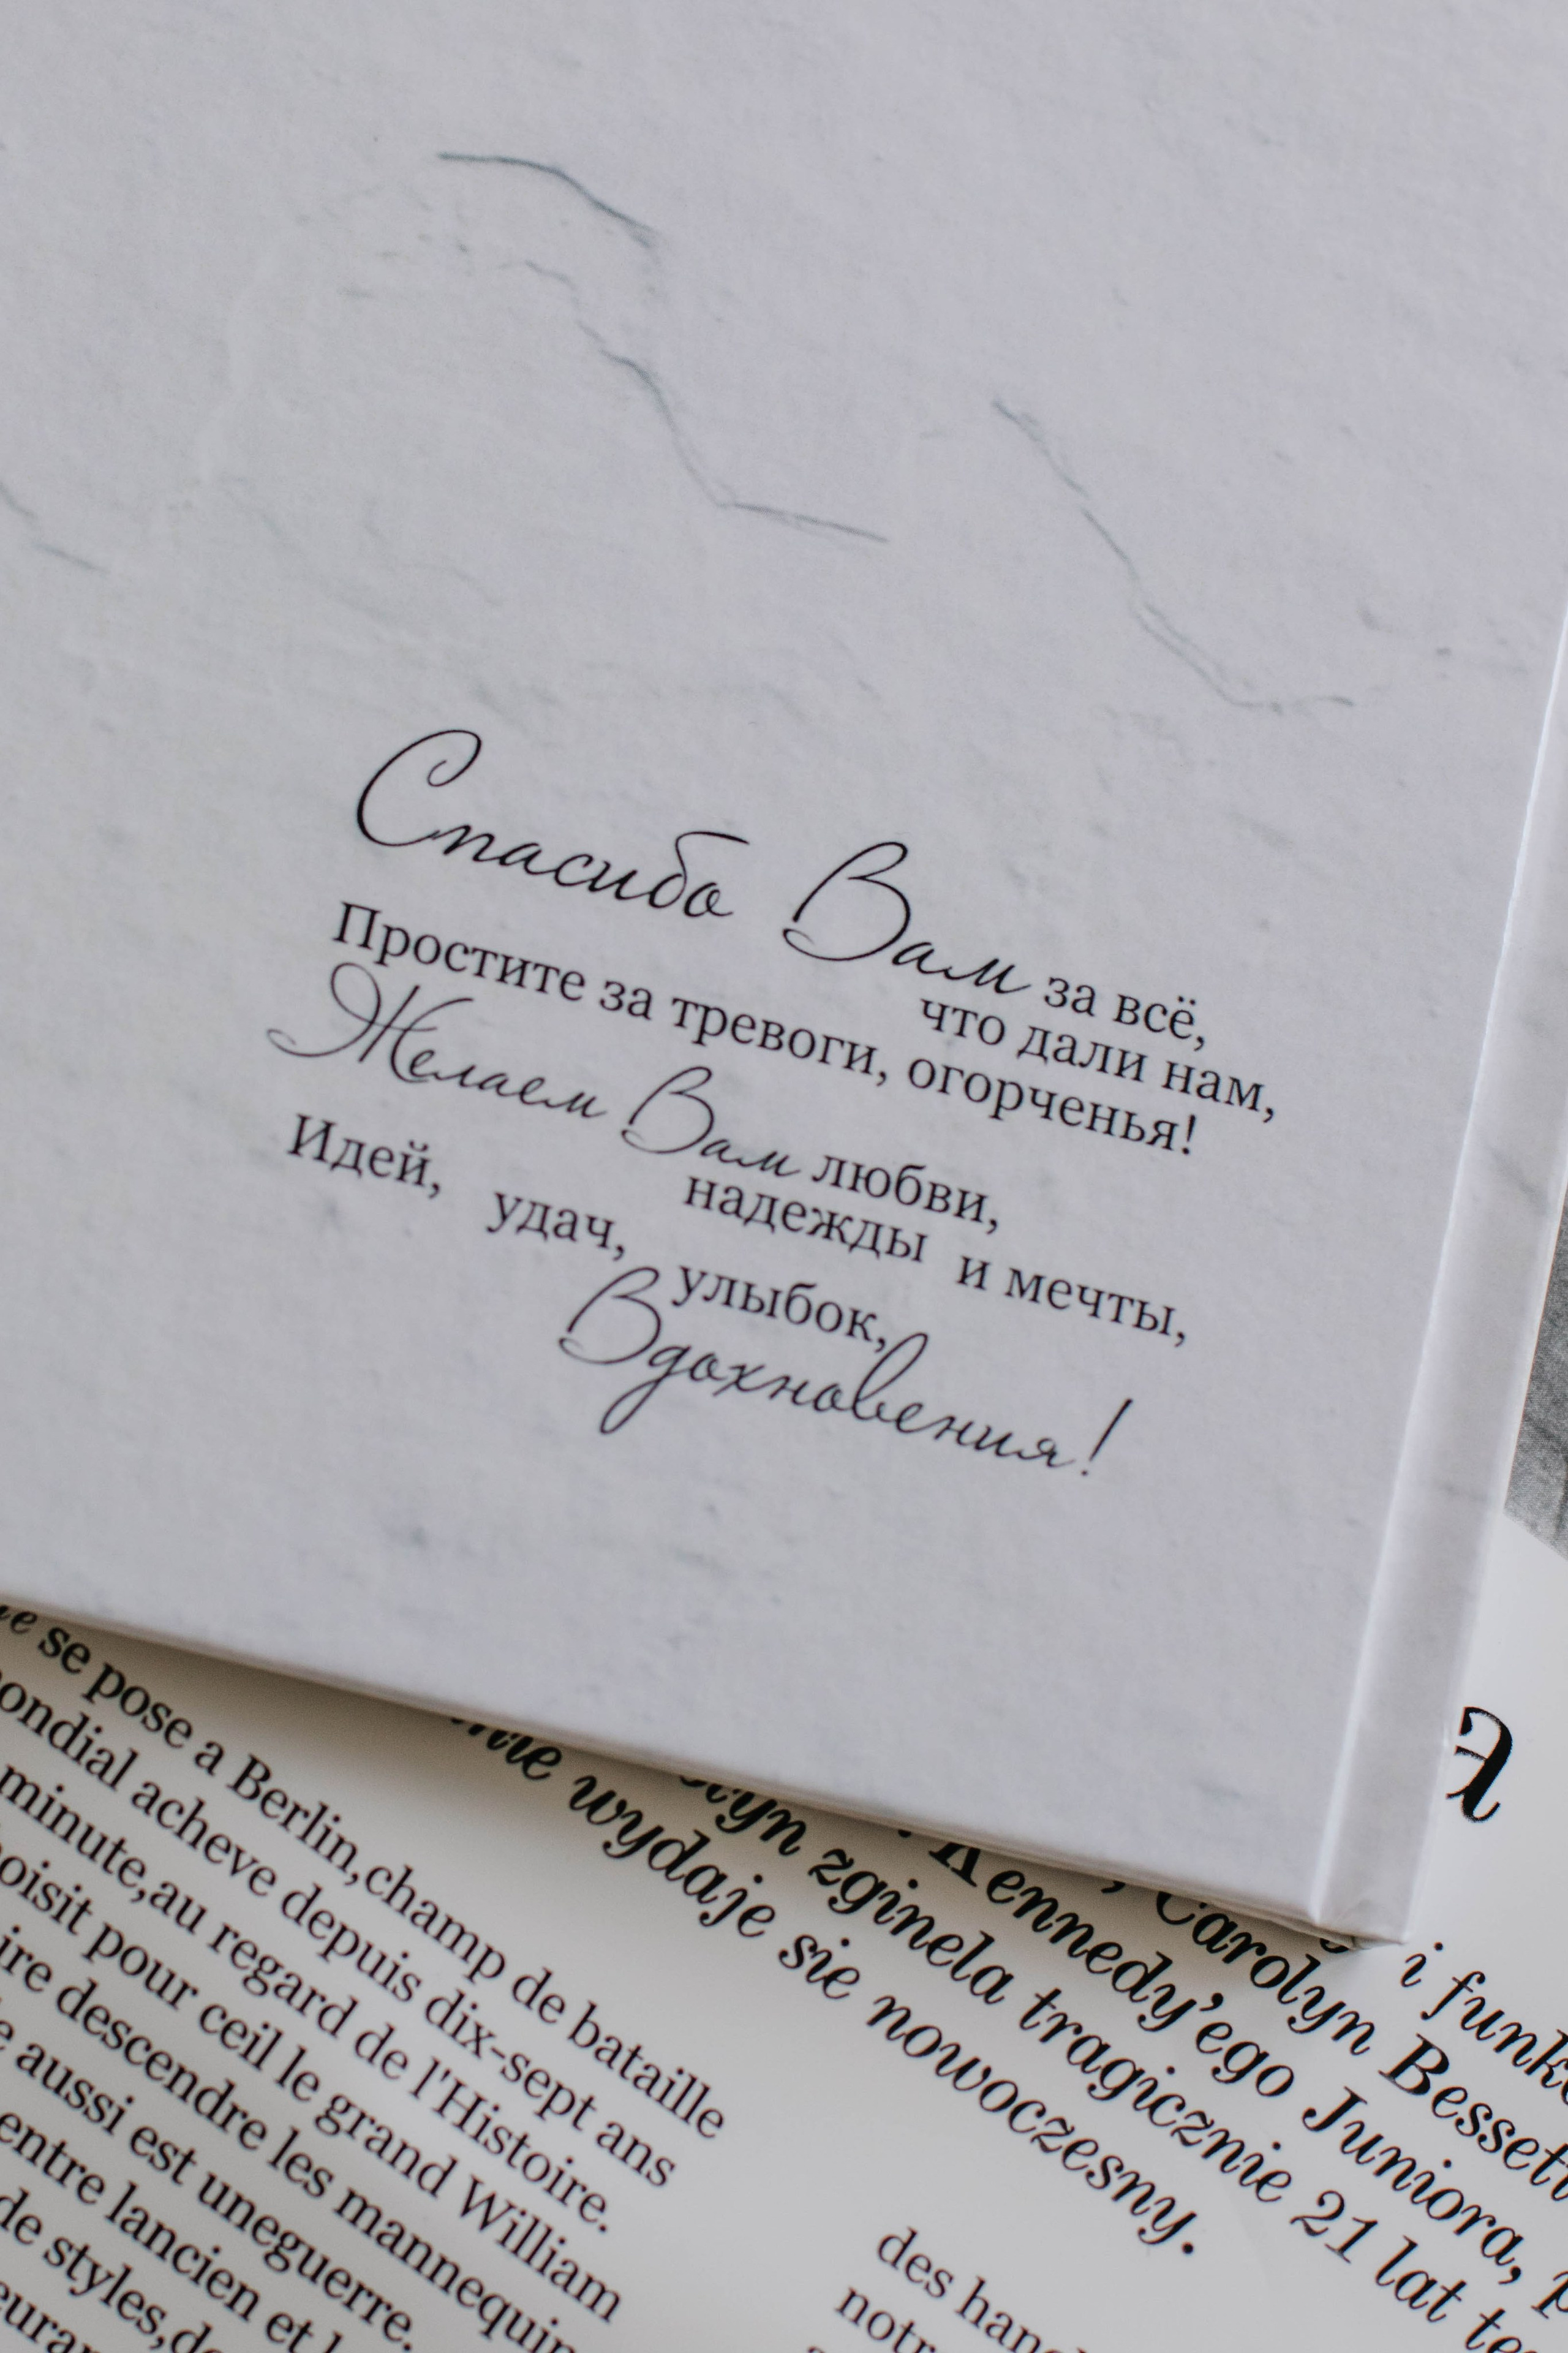 Спасибо Вам за всё,
что дали нам,
Простите за тревоги, огорченья!
Желаем Вам любви,
надежды и мечты,
Идей, удач, улыбок,
Вдохновения!
se pose a Berlin,champ de bataille
acheve depuis dix-sept ans
minute,au regard de l'Histoire.
pour ceil le grand William
descendre les mannequin
aussi est uneguerre.
entre lancien et
de styles,
wydaje sie nowoczesny.
zginela tragicznie 21 lat
Kennedy'ego Juniora,
Carolyn Bessett
i funk
des
notr